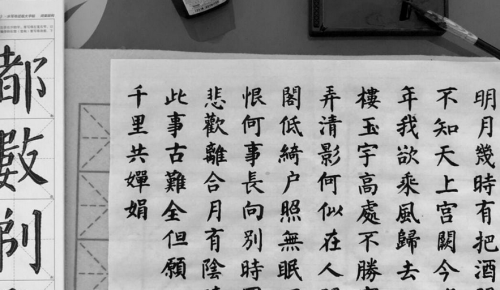 明月幾時有把酒
不知天上宮闕今
年我欲乘風歸去
樓玉宇高處不勝
弄清影何似在人
閣低綺户照無眠
恨何事長向別時
悲歡離合月有陰
此事古難全但願
千里共嬋娟
都數